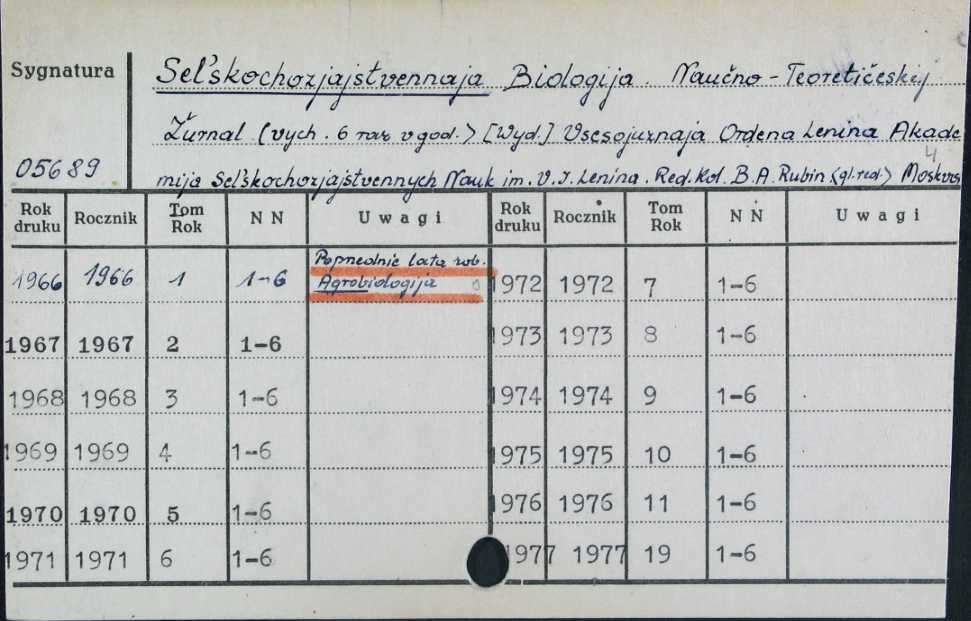 Sygnatura
Sel'skochozjajstvennaja Biologija. Naučno-Teoretičeskij
Žurnal (vych. 6 raz v god.) [Wyd.] Vsesojuznaja Ordena Lenina Akade
05689
mija Sel'skochozjajstvennych Nauk im. V. I. Lenina. Red. Kol. B. A. Rubin (gl. red.) Moskva
4
Rok druku Rocznik Tom Rok N N Uwagi Rok druku Rocznik Tom Rok N N Uwagi
1966 1966 1 1-6 Poprzednie lata zob. Agrobiologija 1972 1972 7 1-6
1967 1967 2 1-6 1973 1973 8 1-6
1968 1968 3 1-6 1974 1974 9 1-6
1969 1969 4 1-6 1975 1975 10 1-6
1970 1970 5 1-6 1976 1976 11 1-6
1971 1971 6 1-6 1977 1977 19 1-6